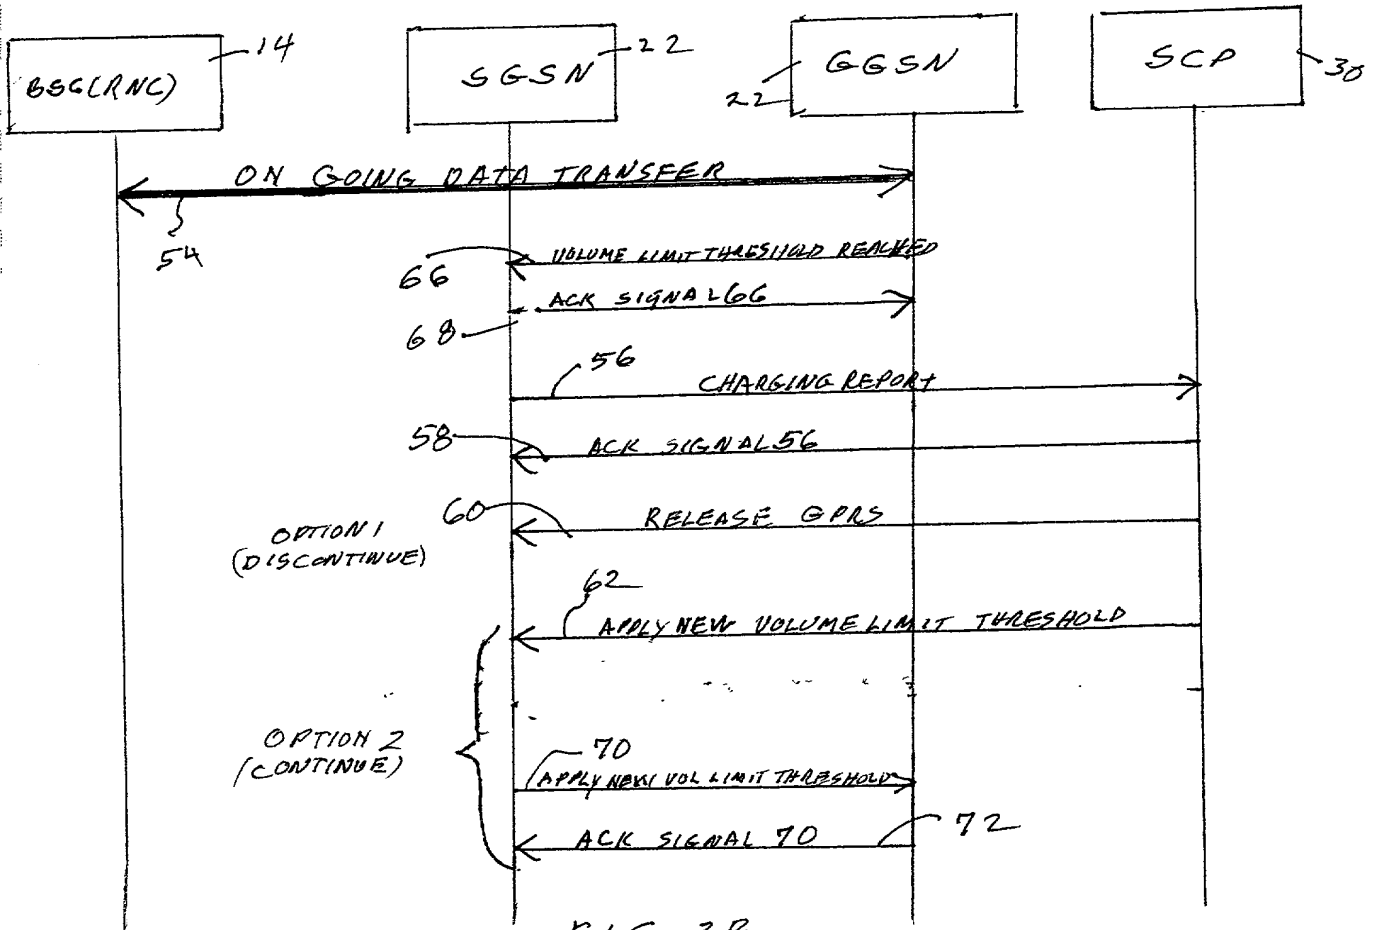 BSC(RNC)
14
SGSN
22
GGSN
22
SCP
30
ON GOING DATA TRANSFER
54
VOLUME LIMIT THRESHOLD REACHED
66
ACK SIGNAL 66
68
56
CHARGING REPORT
58
ACK SIGNAL 56
60
RELEASE GPRS
OPTION 1
(DISCONTINUE)
62
APPLY NEW VOLUME LIMIT THRESHOLD
OPTION 2
(CONTINUE)
70
APPLY NEW VOL LIMIT THRESHOLD
ACK SIGNAL 70
72